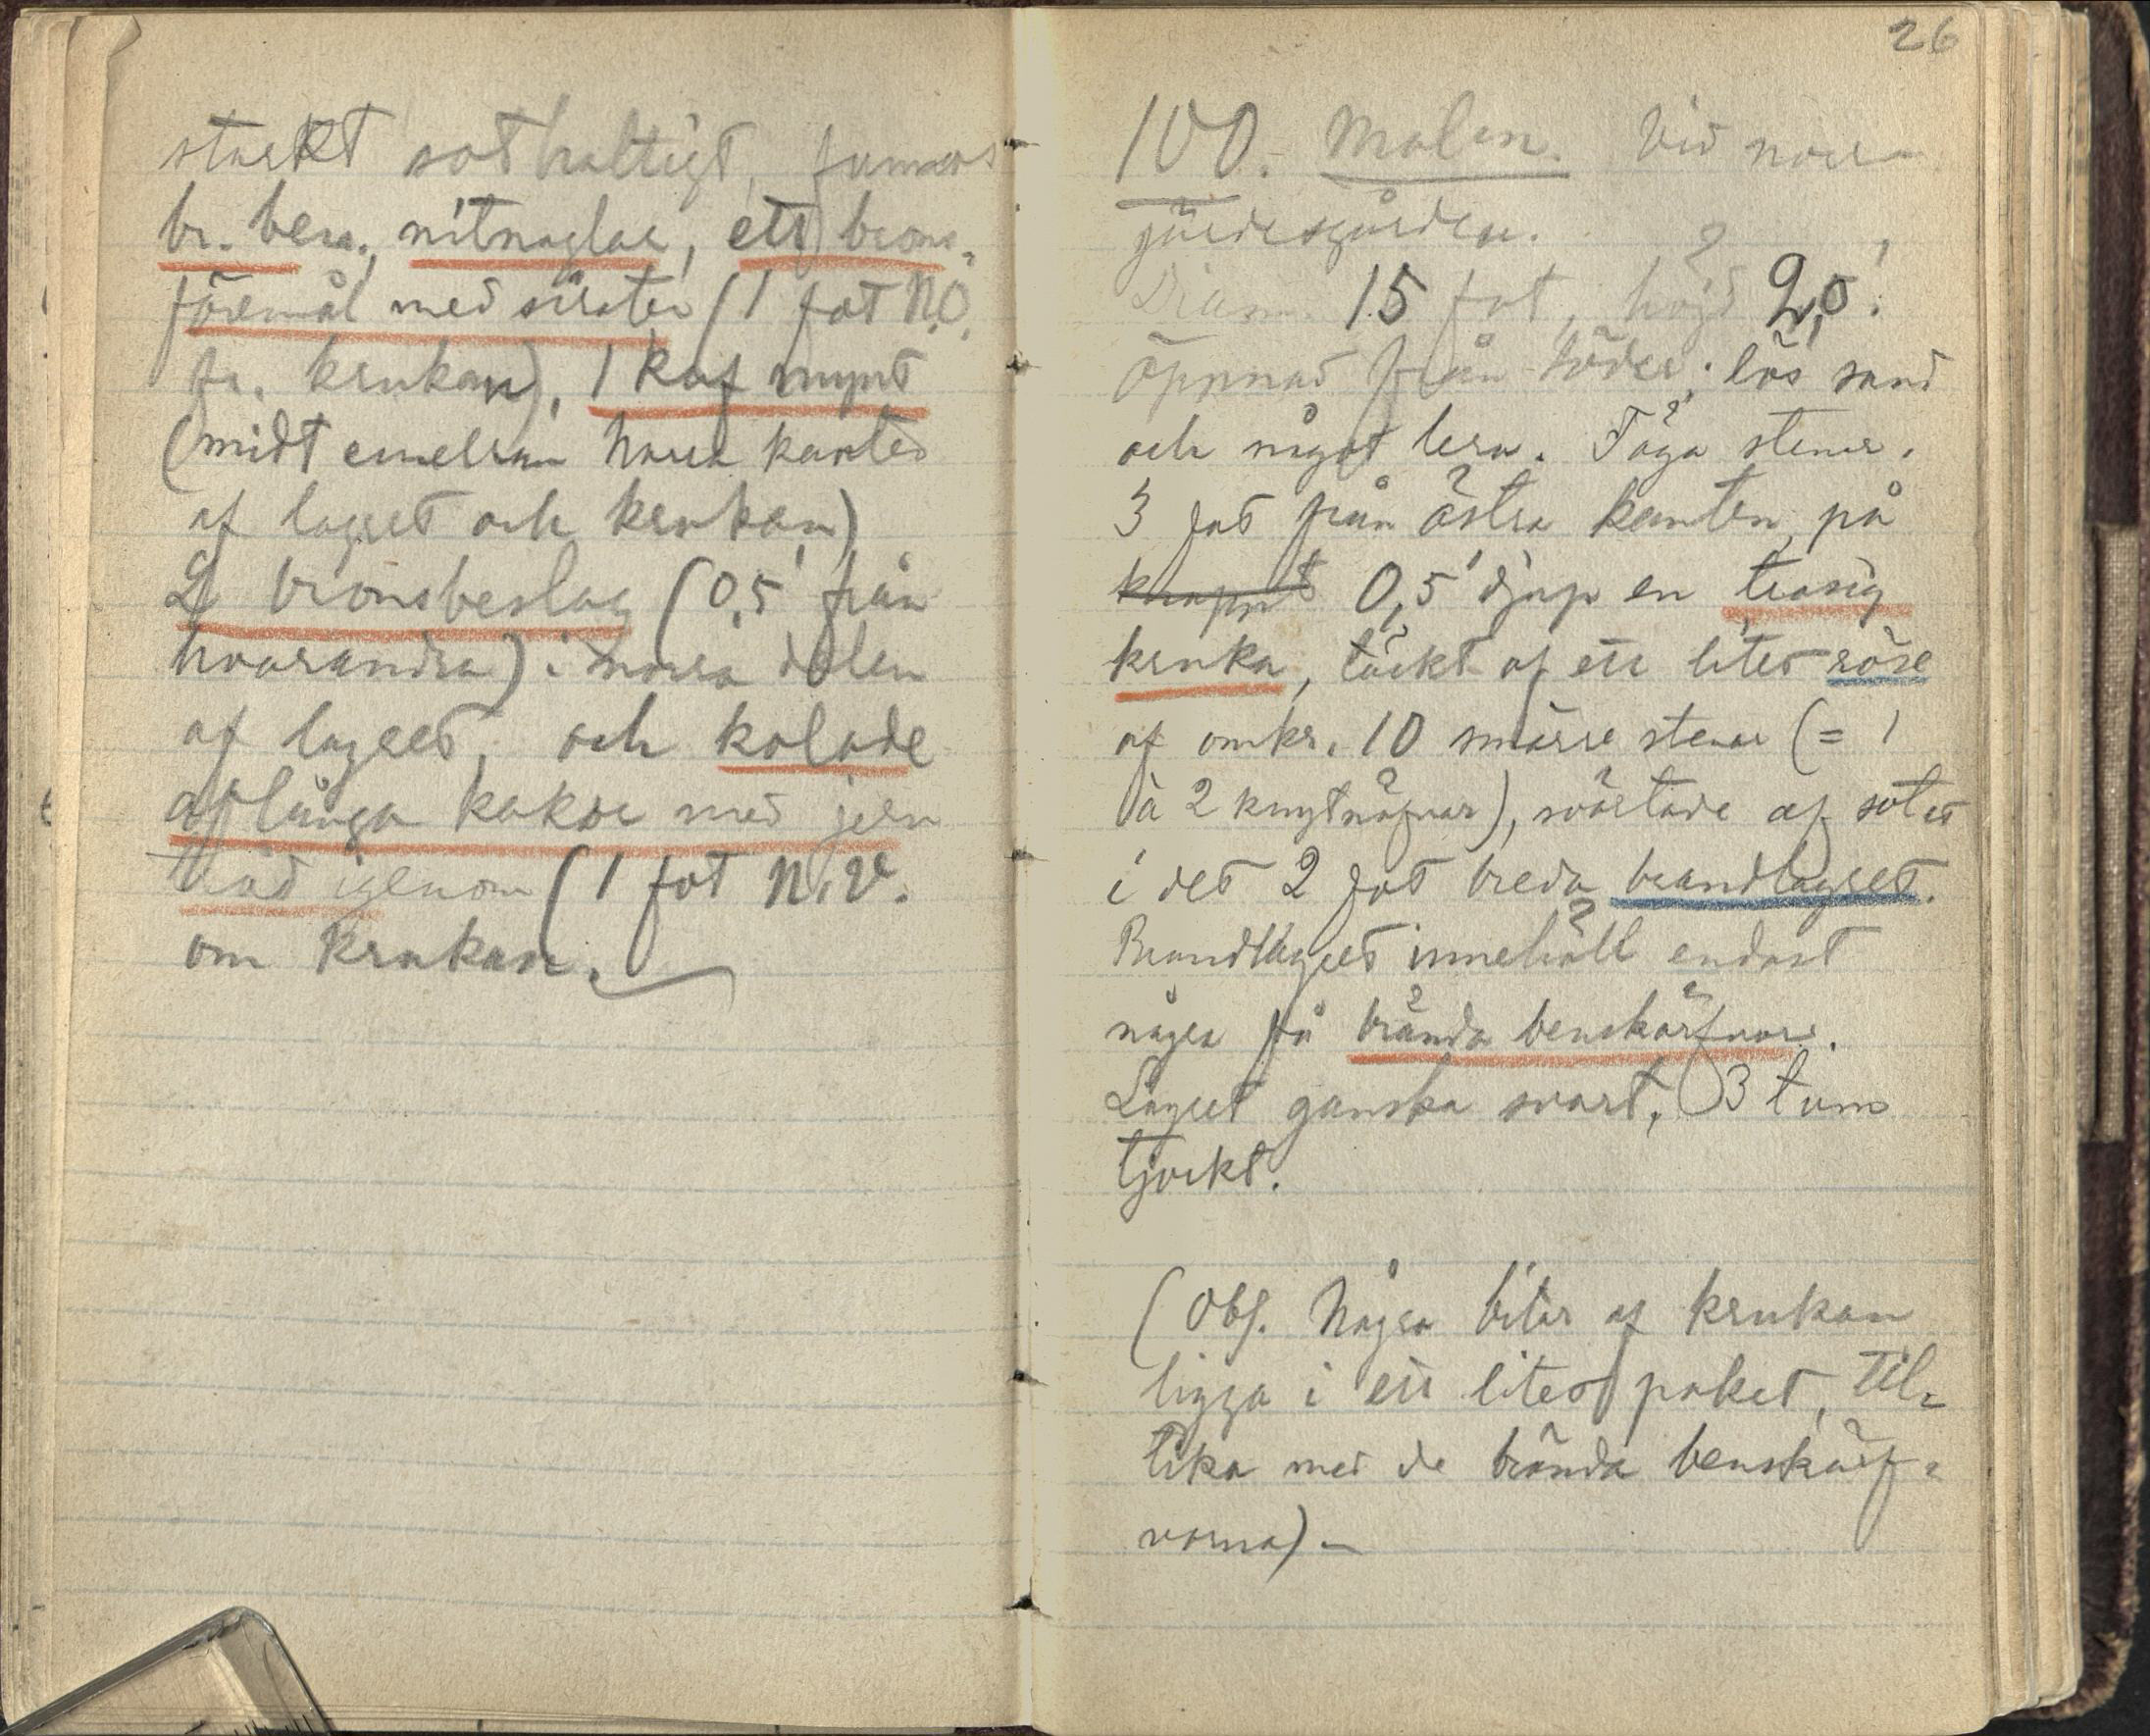 starkt sothaltigt, funnos
br. ben, nitnaglar, ett brons-
föremål med sirater (1 fot N.O.
fr. krukan), 1 kuf. mynt
(midt emellan norra kanten
af lagret och krukan)
2 bronsbeslag (0,5' från
hvarandra) i norra delen
af lagret, och kolade
aflånga kakor med jern
tråd igenom (1 fot N.V.
om krukan.
26
100. Malen. Vid norra
gärdesgården.
Diam. 15 fot, höjd 2,5'.
Öppnad från söder; lös sand
och något lera. Inga stenar.
3 fot från östra kanten på
knappt 0,5' djup en trasig
kruka, täckt af ett litet röse
af omkr. 10 smärre stenar (= 1
à 2 knytnäfvar), svärtade af sotet
i det 2 fot breda brandlagret.
Brandlagret innehöll endast
några få brända benskärfvor.
Lagret ganska svart, 3 tum
tjockt.
(Obs. Några bitar af krukan
ligga i ett litet paket, til-
lika med de brända benskärf-
vorna)-